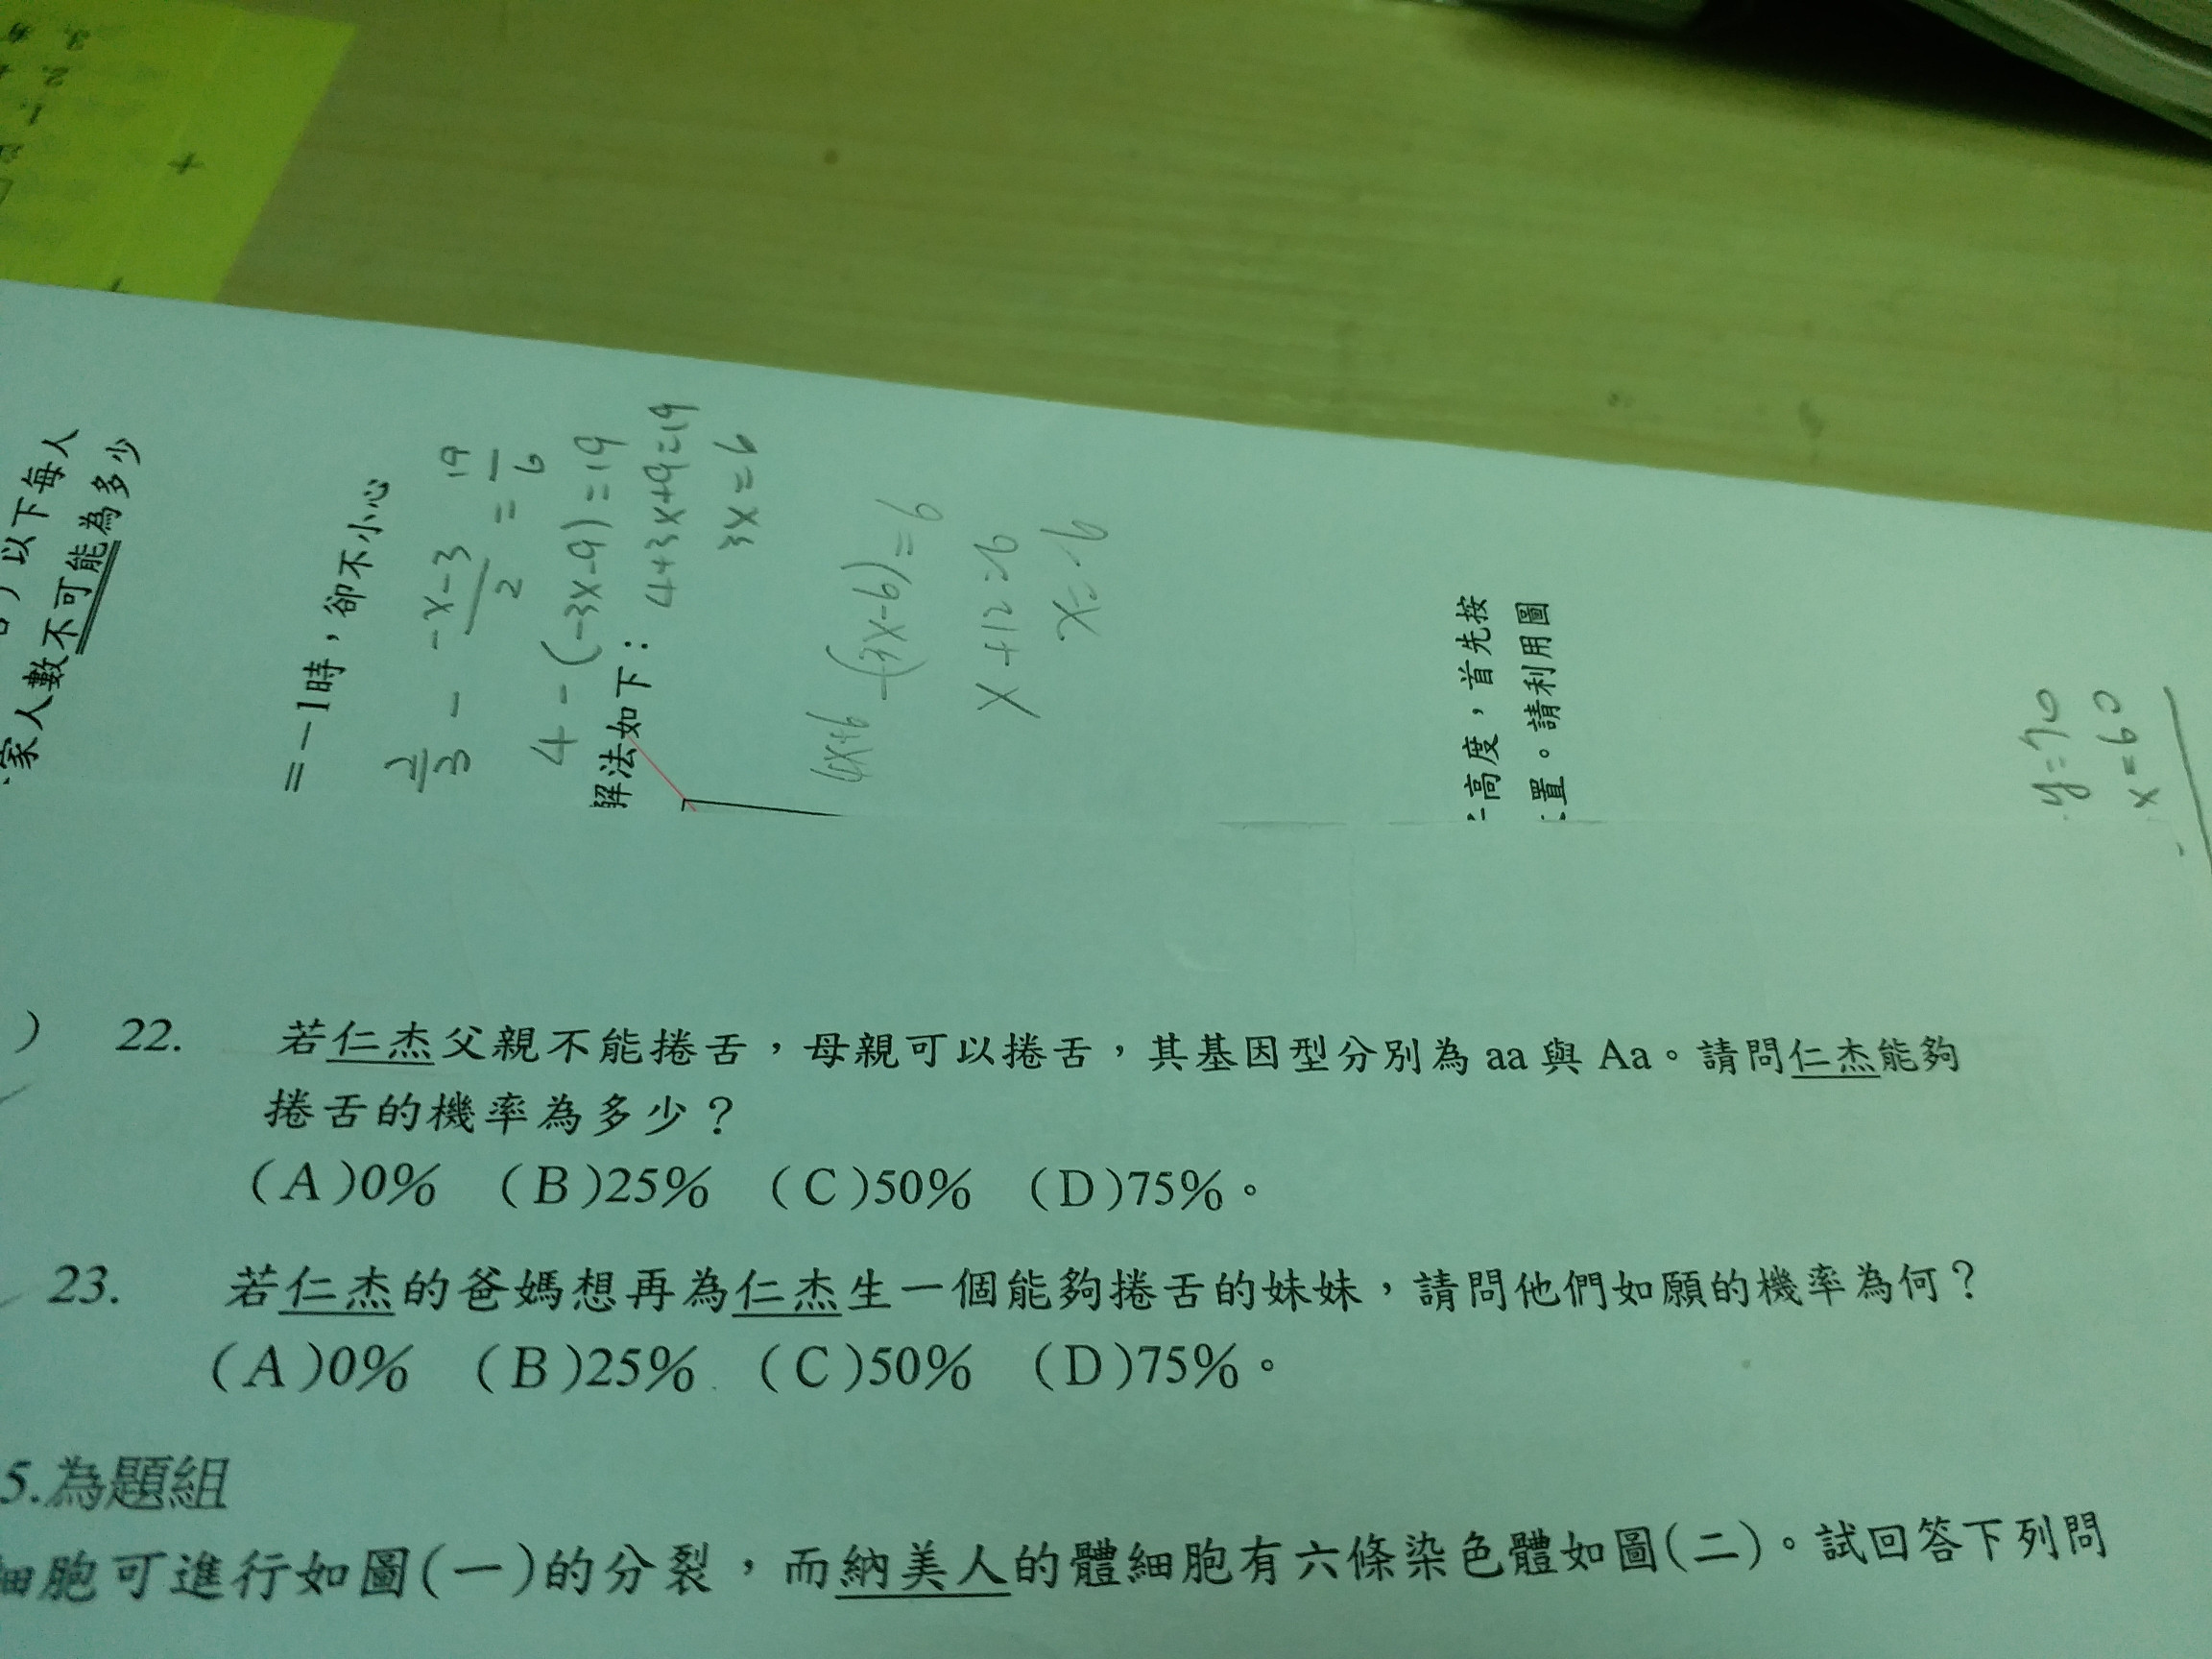 以下每人
家人數不可能為多少
=－1時，卻不小心
2/3 - -x-3/2 = 19/6
4-(-3x-9)=19
解法如下：
4+3x+9=19
3x=6
x+12=6
高度，首先按
置。請利用圖
y=70
x=60
) 22. 若仁杰父親不能捲舌，母親可以捲舌，其基因型分別為 aa 與 Aa。請問仁杰能夠
捲舌的機率為多少？
(A)0% (B)25% (C)50% (D)75%。
23. 若仁杰的爸媽想再為仁杰生一個能夠捲舌的妹妹，請問他們如願的機率為何？
(A)0% (B)25% (C)50% (D)75%。
5.為題組
細胞可進行如圖(一)的分裂，而納美人的體細胞有六條染色體如圖(二)。試回答下列問